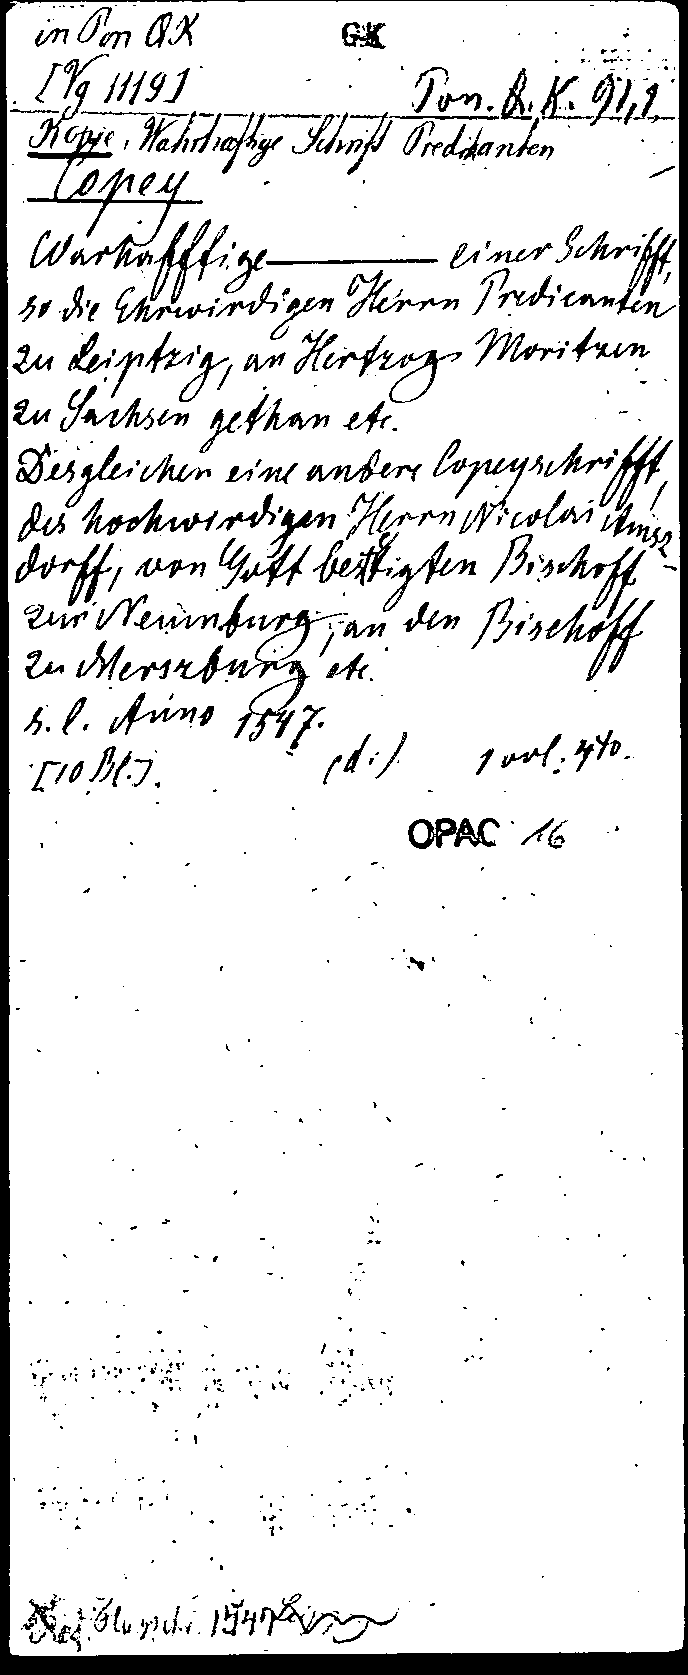 in Pon QK GK
[Vg 1119] Pon. Q. K. 91,1.
Kopie, Wahrhaftige Schrift Predikanten
Copey
Warhafftige ——— einer Schrifft,
so die Ehrwirdigen Herrn Predicanten
zu Leiptzig, an Hertzog Moritzen
zu Sachsen gethan etc.
Desgleichen eine andere Copeyschrifft,
des hochwirdigen Herrn Nicolai Amsz-
dorff, von Gott bestetigten Bischoff
zur Neumburg, an den Bischoff
zu Merszburg etc.
s. l. Anno 1547.
[10 Bl.]. (d:) 1 vol. 4to.
OPAC 16
1547